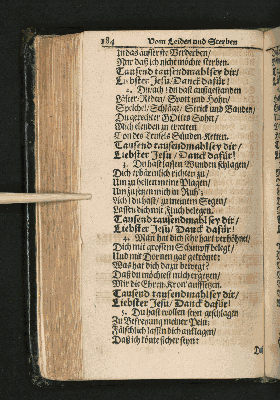 184 Vom Leiden und Sterben
In das äusserste Verderben/
Nur daß ich nicht möchte sterben.
Tausend tausendmahl sey dir/
Liebster Jesu/ Danck dafür!
2. Du/ ach! du hast ausgestanden
Läster-Reden/ Spott und Hohn/
Speichel/ Schläge/ Strick und Banden/
Du gerechter GOttes Sohn/
Mich elenden zu erretten
Von des Teufels Sünden-Ketten.
Tausend tausendmahl sey dir/
Liebster Jesu/ Danck dafür!
3. Du hast lassen Wunden schlagen/
Dich erbärmlich richten zu/
Um zu heilen meine Plagen/
Um zu setzen mich in Ruh;
Ach! du hast/ zu meinem Segen/
Lassen dich mit Fluch belegen.
Tausend tausendmahl sey dir/
Liebster Jesu/ Danck dafür!
4. Man hat dich sehr hart verhöhnet/
Dich mit grossem Schimpff belegt/
Und mit Dornen gar gekrönet:
Was hat dich dazu bewegt?
Daß du möchtest mich ergetzen/
Mir die Ehren-Kron' aufsetzen.
Tausend tausendmahl sey dir/
Liebster Jesu/ Danck dafür!
5. Du hast wollen seyn geschlagen
Zu Befreyung meiner Pein;
Fälschlich lassen dich anklagen/
Daß ich könte sicher seyn: